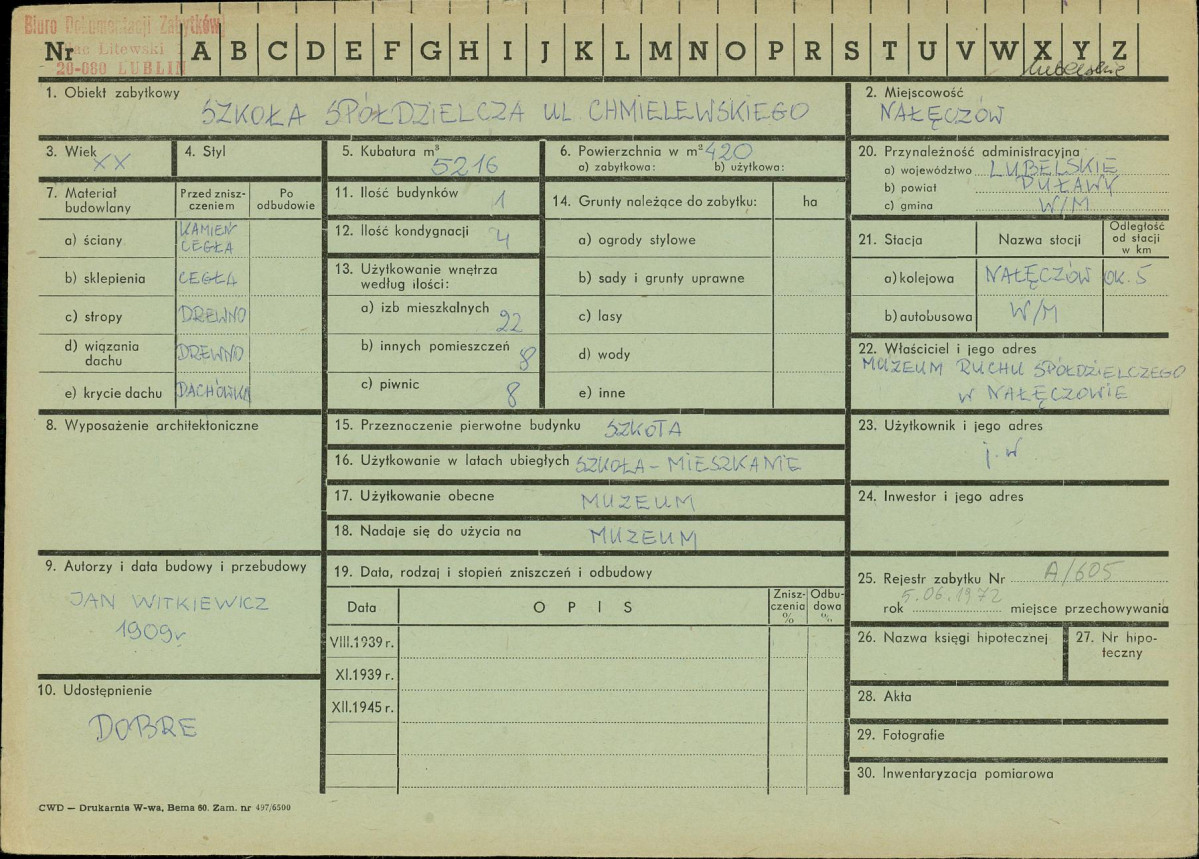 Biuro Dokumentacji Zabytków
Plac Litewski 1
20-080 LUBLIN
Nr A B C D E F G H I J K L M N O P R S T U V W X Y Z
lubelskie
1. Obiekt zabytkowy SZKOŁA SPÓŁDZIELCZA UL CHMIELEWSKIEGO
2. Miejscowość NAŁĘCZÓW
3. Wiek XX
4. Styl
5. Kubatura m³ 5216
6. Powierzchnia w m² 420
a) zabytkowa: b) użytkowa:
7. Materiał budowlany
Przed zniszczeniem
Po odbudowie
a) ściany KAMIEŃ CEGŁA
b) sklepienia CEGŁA
c) stropy DREWNO
d) wiązania dachu DREWNO
e) krycie dachu DACHÓWKA
8. Wyposażenie architektoniczne
9. Autorzy i data budowy i przebudowy
JAN WITKIEWICZ
1909r
10. Udostępnienie
DOBRE
11. Ilość budynków 1
12. Ilość kondygnacji 4
13. Użytkowanie wnętrza według ilości:
a) izb mieszkalnych 22
b) innych pomieszczeń 8
c) piwnic 8
14. Grunty należące do zabytku: ha
a) ogrody stylowe
b) sady i grunty uprawne
c) lasy
d) wody
e) inne
15. Przeznaczenie pierwotne budynku SZKOŁA
16. Użytkowanie w latach ubiegłych SZKOŁA - MIESZKANIE
17. Użytkowanie obecne MUZEUM
18. Nadaje się do użycia na MUZEUM
19. Data, rodzaj i stopień zniszczeń i odbudowy
Data OPIS Zniszczenia % Odbudowa %
VIII.1939 r.
XI.1939 r.
XII.1945 r.
20. Przynależność administracyjna
a) województwo LUBELSKIE
b) powiat PUŁAWY
c) gmina W/M
21. Stacja Nazwa stocji Odległość od stacji w km
a) kolejowa NAŁĘCZÓW OK. 5
b) autobusowa W/M
22. Właściciel i jego adres
MUZEUM RUCHU SPÓŁDZIELCZEGO
W NAŁĘCZOWIE
23. Użytkownik i jego adres
j.w
24. Inwestor i jego adres
25. Rejestr zabytku Nr A/605
rok 5.06.1972 miejsce przechowywania
26. Nazwa księgi hipotecznej
27. Nr hipoteczny
28. Akta
29. Fotografie
30. Inwentaryzacja pomiarowa
CWD — Drukarnia W-wa, Bema 60. Zam. nr 497/6500